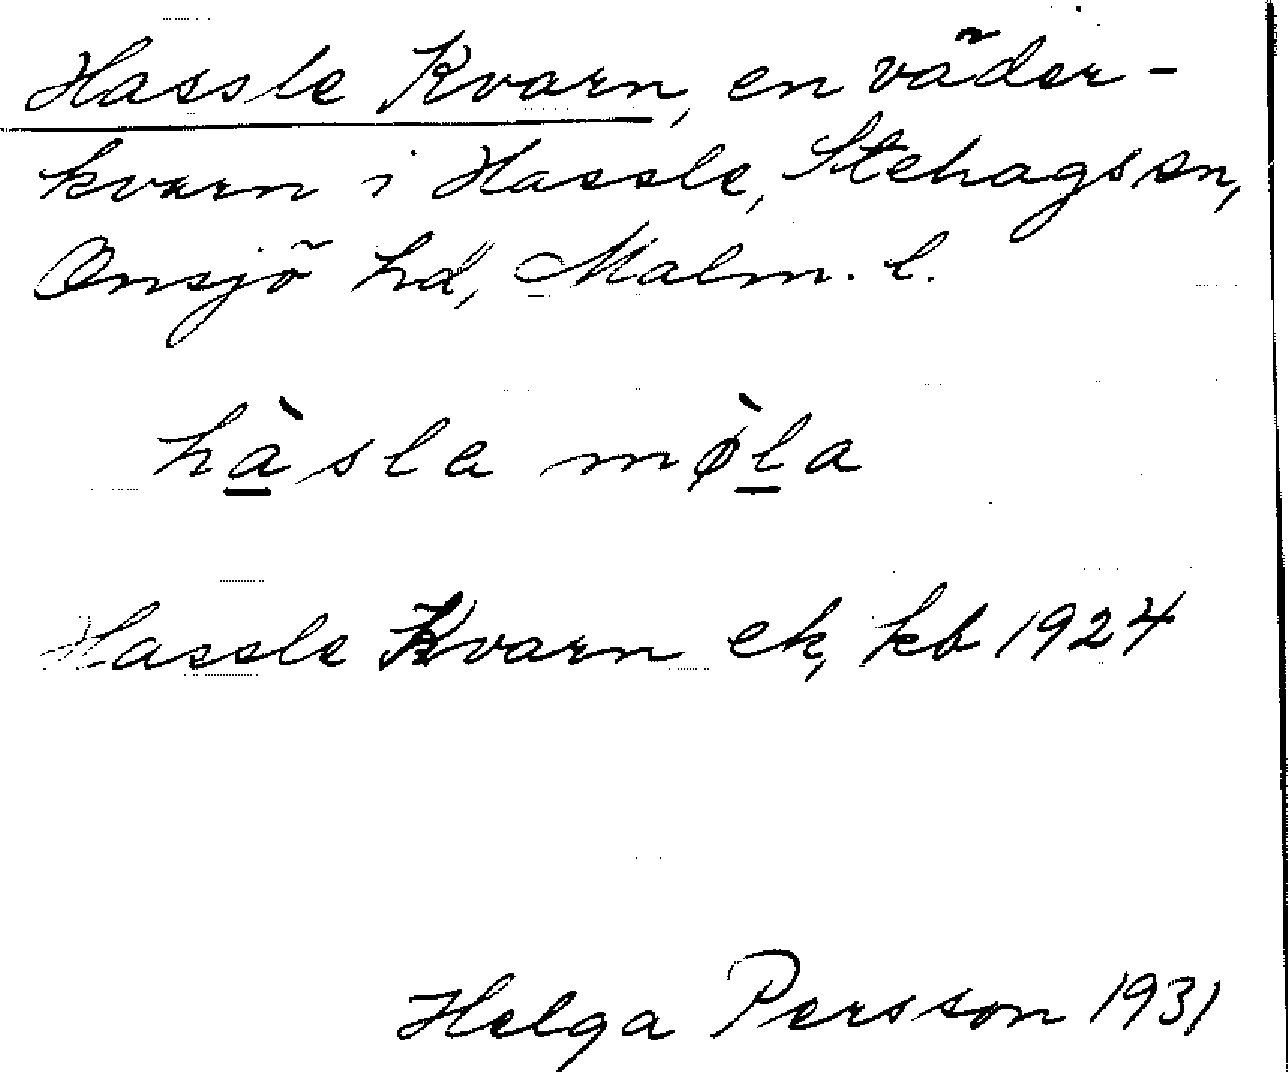 Hassle Kvarn, en väder-
kvarn i Hassle, Stehags sn,
Onsjö hd, Malm. l.
hàsla mø̀la
Hassle Kvarn ek, kb 1924
Helga Persson 1931